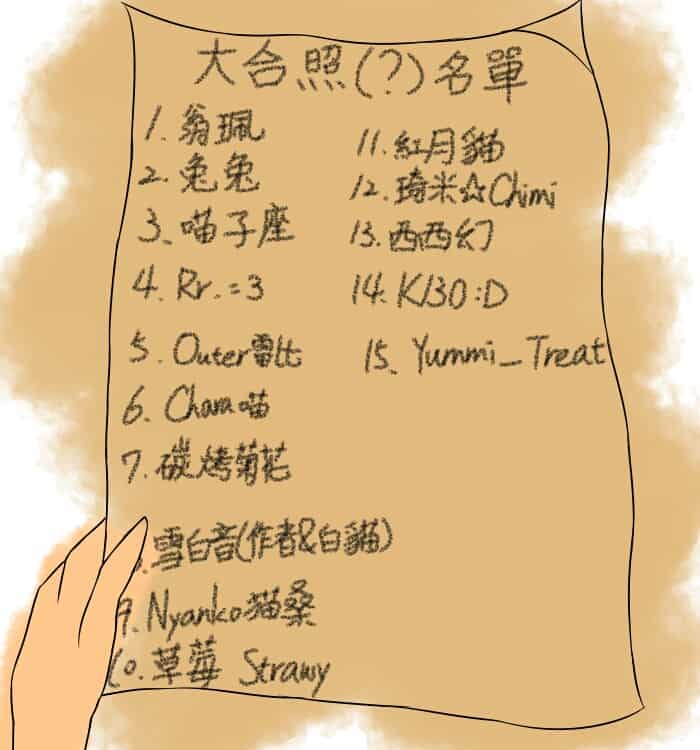 大合照(?)名單
1. 翁珮
2. 兔兔
3. 喵子座
4. Rr. = 3
5. Outer雪比
6. Chara喵
7. 碳烤菊花
雪白音(作者&白貓)
9. Nyanko貓桑
10. 草莓 Strawy
11. 紅月貓
12. 琦米☆Chimi
13. 西西幻
14. K130:D
15. Yummi_Treat